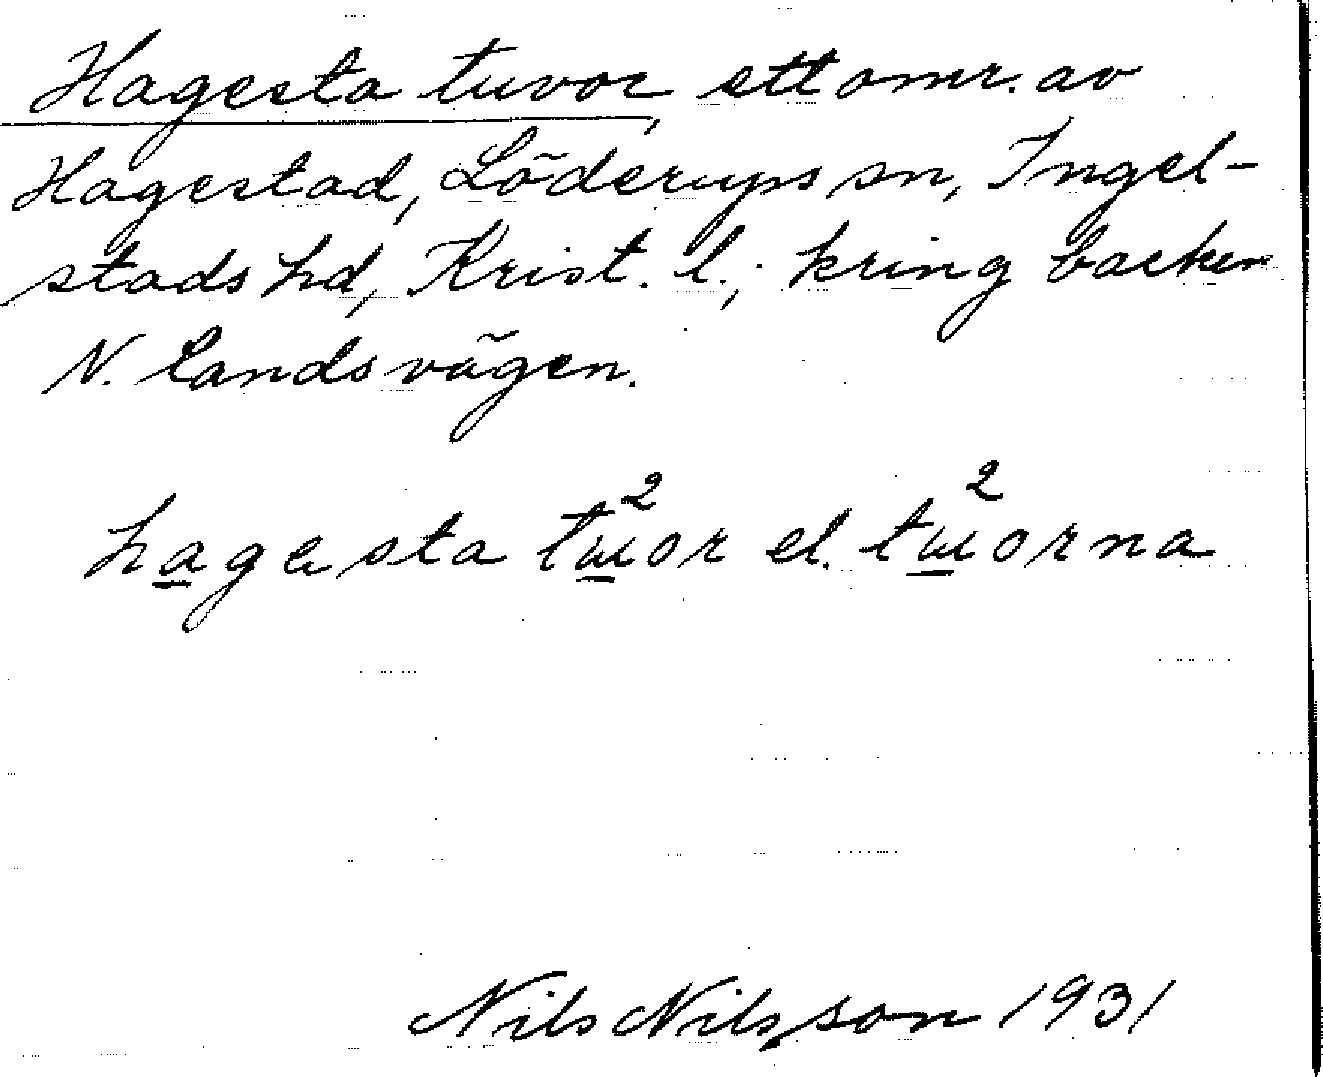 Hagesta tuvor, ett omr. av
Hagestad, Löderups sn, Ingel-
stads hd, Krist. l.; kring backen
N. landsvägen.
hagesta tɯ²or el. tɯ²orna
Nils Nilsson 1931